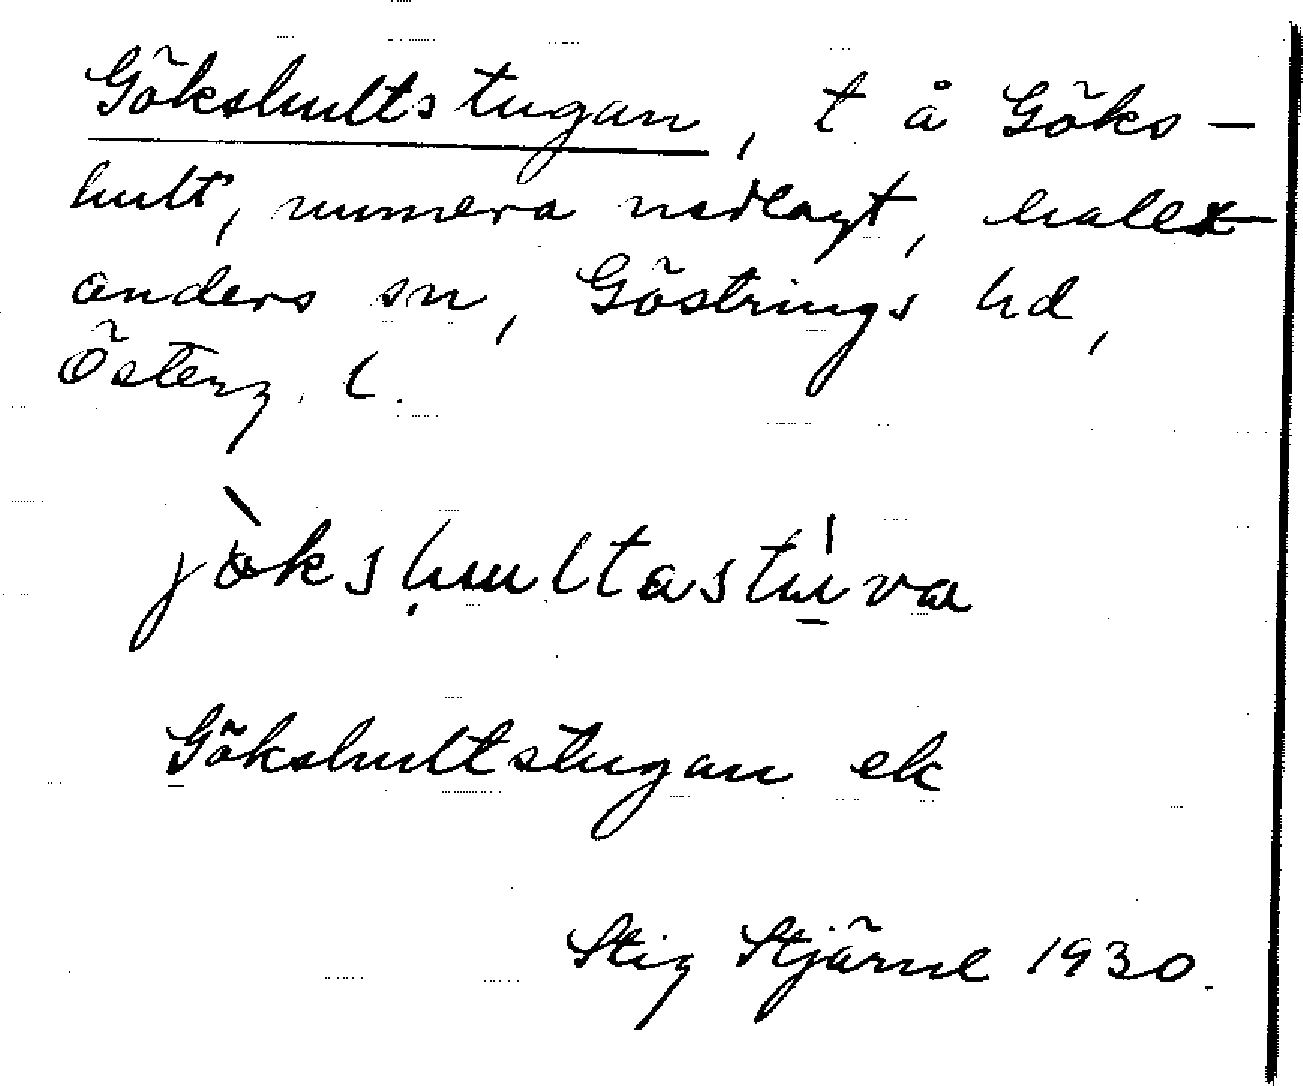 Gökshultstugan, t å Göks-
hult, numera nedlagt, Ekalex
anders sn, Göstrings hd,
Österg. l.
jökshultastúva
Gökshultstugan ek
Stig Stjärne 1930.